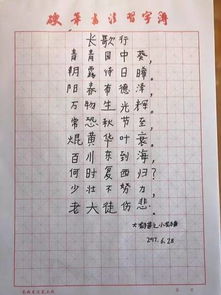 硬笔书法习字簿
长歌行
青青园中葵，
朝露待日晞。
阳春布德泽，
万物生光辉。
常恐秋节至，
焜黄华叶衰。
百川东到海，
何时复西归？
少壮不努力，
老大徒伤悲。